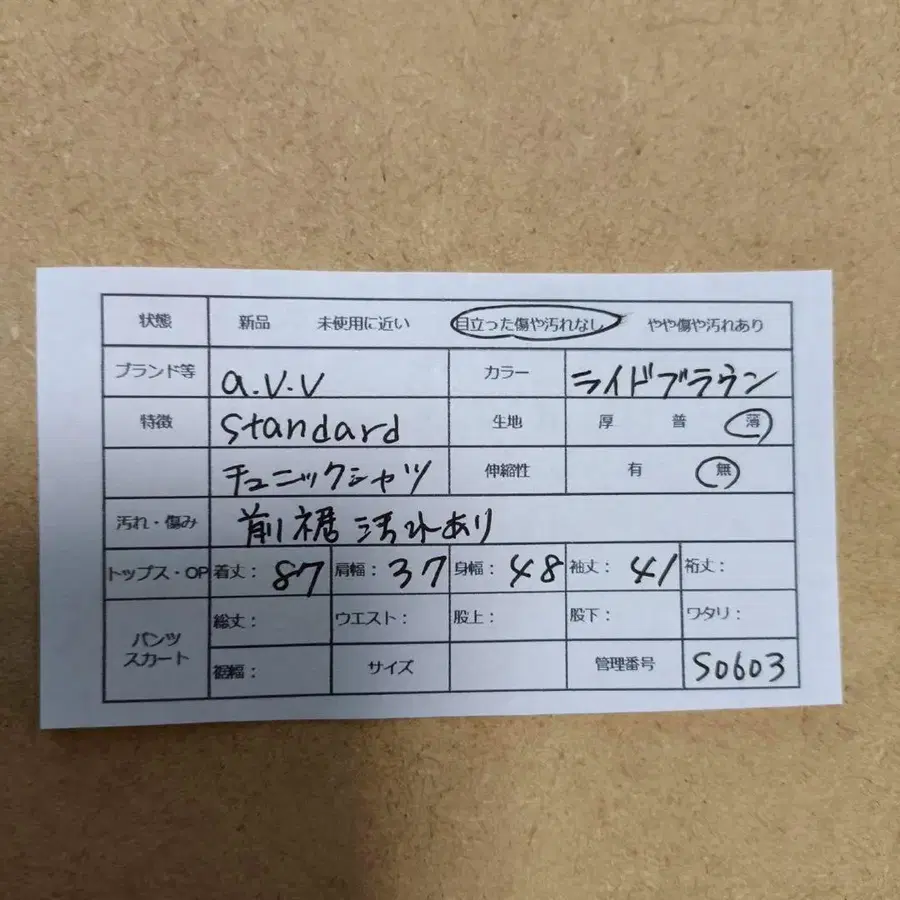 状態 新品 未使用に近い 目立った傷や汚れなし やや傷や汚れあり
ブランド等 a.v.v カラー ライドブラウン
特徴 Standard 生地 厚 普 薄
チュニックシャツ 伸縮性 有 無
汚れ・傷み 前裾汚れあり
トップス・OP 着丈: 87 肩幅: 37 身幅: 48 袖丈: 41 裄丈:
パンツ スカート 総丈: ウエスト: 股上: 股下: ワタリ:
裾幅: サイズ 管理番号 S0603